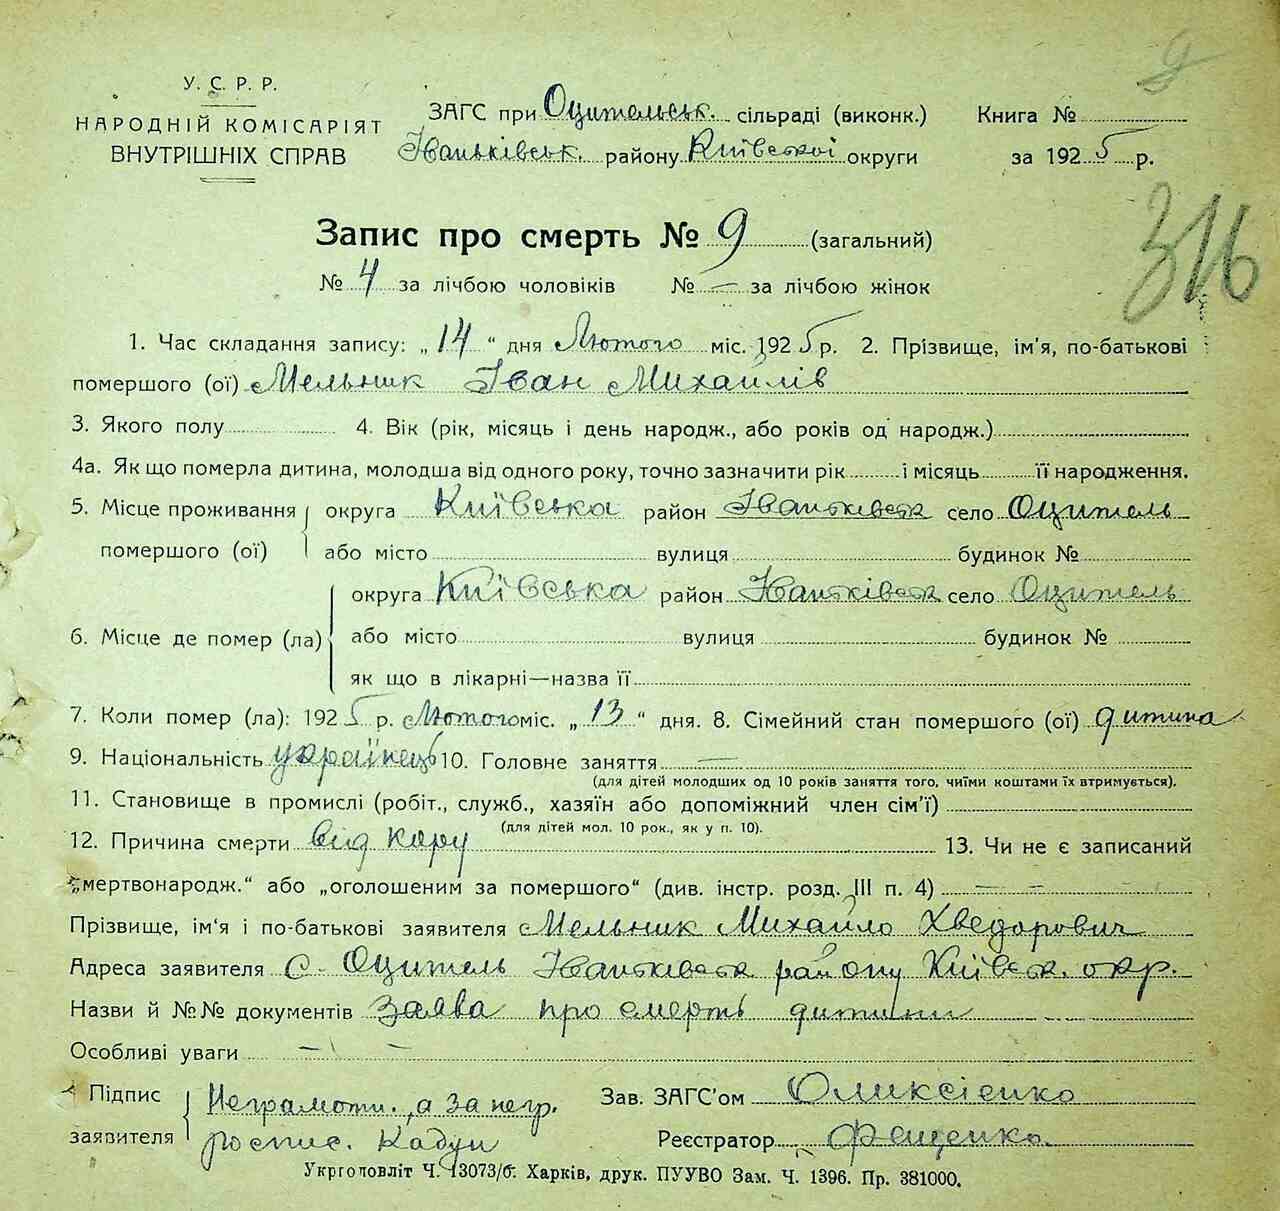 У. С. Р. Р.
НАРОДНІЙ КОМІСАРІЯТ
ВНУТРІШНІХ СПРАВ
ЗАГС при Оцительськ. сільраді (виконк.)
Іваньківськ. району Київської округи
Книга №
за 1925 р.
9
316
Запис про смерть № 9 (загальний)
№ 4 за лічбою чоловіків № — за лічбою жінок
1. Час складання запису: „14“ дня Лютого міс. 1925 р. 2. Прізвище, ім'я, по-батькові
помершого (ої) Мельник Іван Михайлів
3. Якого полу 4. Вік (рік, місяць і день народж., або років од народж.)
4а. Як що померла дитина, молодша від одного року, точно зазначити рік і місяць її народження.
5. Місце проживання округа Київська район Іваньківськ село Оцитель
помершого (ої) або місто вулиця будинок №
округа Київська район Іваньківськ село Оцитель
6. Місце де помер (ла) або місто вулиця будинок №
як що в лікарні—назва її
7. Коли помер (ла): 1925 р. Лютого міс. „13“ дня. 8. Сімейний стан помершого (ої) дитина
9. Національність українець 10. Головне заняття —
(для дітей молодших од 10 років заняття того, чиїми коштами їх втримується).
11. Становище в промислі (робіт., служб., хазяїн або допоміжний член сім'ї)
(для дітей мол. 10 рок., як у п. 10).
12. Причина смерти від кору 13. Чи не є записаний
„мертвонародж.“ або „оголошеним за помершого“ (див. інстр. розд. III п. 4) — —
Прізвище, ім'я і по-батькові заявителя Мельник Михайло Хведорович
Адреса заявителя с. Оцитель Іваньківськ району Київськ. окр.
Назви й №№ документів Заява про смерть дитини
Особливі уваги — —
Підпис Неграмотн., а за негр.
заявителя роспис. Кадун
Зав. ЗАГС'ом Оликсієнко
Реєстратор Фещенко
Укрголовліт Ч. 13073/б. Харків, друк. ПУУВО Зам. Ч. 1396. Пр. 381000.